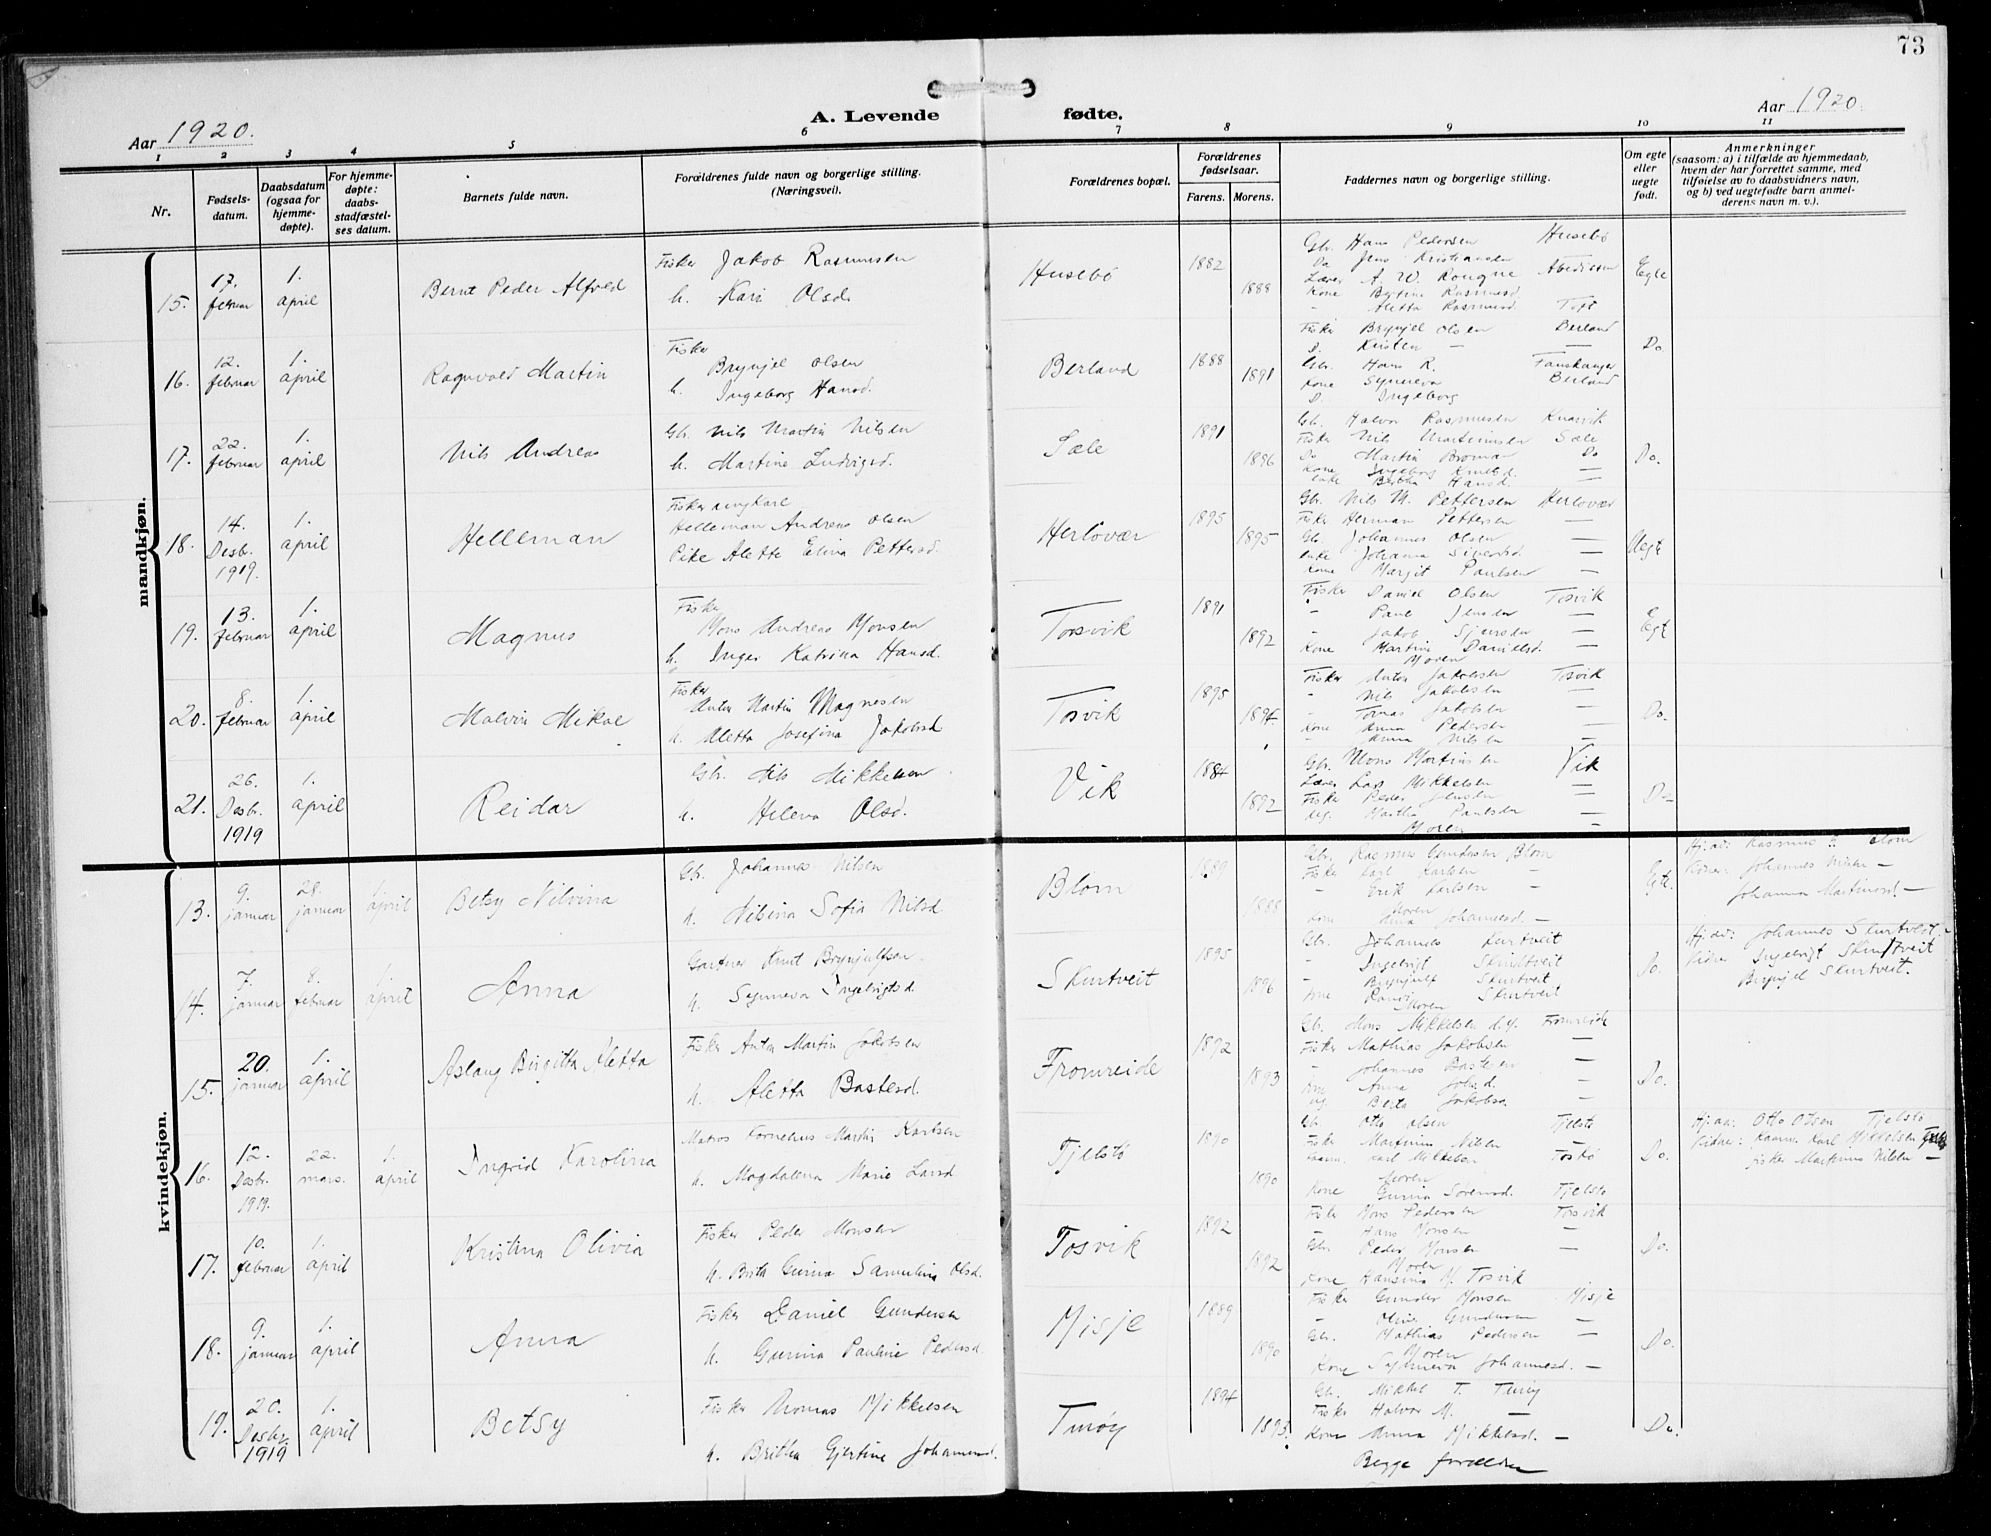 73
Aar 1920.
A. Levende fødte.
Aar 1920.
1 2 3 4 5 6 7 8 9 10 11
Nr.
Fødsels-
datum.
Daabsdatum
(ogsaa for
hjemme-
døpte).
For hjemme-
døpte:
daabs-
stadfæstel-
ses datum.
Barnets fulde navn.
Forældrenes fulde navn og borgerlige stilling.
(Næringsvei).
Forældrenes bopæl.
Forældrenes
fødselsaar.
Farens. Morens.
Faddernes navn og borgerlige stilling.
Om egte
eller
uegte
født.
Anmerkninger
(saasom: a) i tilfælde av hjemmedaab,
hvem der har forrettet samme, med
tilføielse av to daabsvidners navn,
og b) ved uegtefødte barn anmel-
derens navn m. v.).
mandkjøn.
15. 17. februar 1. april Bernt Peder Alfred
Fisker Jakob Rasmussen
h. Kari Olsd.
Husebø 1882 1888
Gbr. Hans Pedersen Husebø
Do Jens Kristiansen
Kone Bertine Rasmusd.
Aletta Rasmusd. Toft
Egte
16. 12. februar 1. april Ragnvald Martin
Fisker
Brynjel Olsen
h. Ingeborg Hansd.
Berland 1888 1891
Fisker Brynjel Olsen Berland
D. Kristen — —
Gbr. Hans R.
Kone Synneva Berland
D. Ingeborg
Do
17. 22. februar 1. april Nils Andreas
Gbr. Nils Martin Nilsen
h. Martine Ludvigsd.
Sæle 1891 1896
Gbr. Halvor Rasmussen
Fisker Nils Martinussen Sæle
Do Martin Do
Kone Ingeborg —
Enke Hansd. —
Do.
18. 14. Desbr. 1919. 1. april Helleman
Fisker ungkarl
Helleman Andreas Olsen
Pike Alette Elina Pettersd.
Herløvær 1895 1895
Gbr. Nils M. Pettersen Herløvær
Fisker Herman Pettersen —
Gb. Johannes Olsen —
Enke Johanna Sivertsd. —
Kone Margit Paulsen —
Uegte
19. 13. februar 1. april Magnus
Fisker
Mons Andreas Monsen
h. Inger Katrina Hansd.
Tosvik 1891 1892
Fisker Daniel Olsen Tosvik
" Paul Jensen —
" Jakob —
Kone Martine Danielsd. —
Moren
Egt
20. 8. februar 1. april Malvin Mikal
Fisker
Anton Martin Magnesen
h. Aletta Josefina Jakobsd
Tosvik 1895 1894.
Fisker Anton Jakobsen Tosvik
" Nils Jakobsen —
" Tomas Jakobsen —
Kone Anna Pedersen —
" Anna Nilsen —
Do.
21. 26. Desbr. 1919 1. april Reidar
Gbr. Nils Mikkelsen
h. Helena Olsd.
Vik 1884 1892
Gbr. Mons Martinsen Vik
Lærer Lars Mikkelsen —
Fisker Peder Jensen —
ug. Martha Paulsen —
Moren —
Do
kvindekjøn.
13. 9. januar 28. januar 1. april Betsy Nilvina
Gb. Johannes Nilsen
h. Nilsina Sofia Nilsd
Blom 1889 1888
Gbr. Rasmus Gundersen Blom
Fisker Karl Karlsen —
" Erik Karlsen —
Moren
Kone Anna Johannesd. —
Egte.
Hj.døbt: Rasmus G. Blom
Vidner: Johannes Nilsen —
Johanna Martinusd. —
14. 7. januar 8. februar 1. april Anna
Gartner Knut Brynjulfsen
h. Synneva Ingebrigtsd.
Skurtveit 1895 1896
Gbr. Johannes Skurtveit
" Ingebrigt Skurtveit
" Brynjulf Skurtveit
Kone Ranvi Skurtveit
Moren
Do.
Johannes Skurtveit.
Vidner Ingebrigt Skurtveit
Brynjel Skurtveit.
15. 20. januar 1. april Aslaug Birgitta Aletta
Fisker Anton Martin Jakobsen
h. Aletta Bastesd.
Fromreide 1892 1893
Gb. Mons Mikkelsen d.y. Fromreide
Fisker Mathias Jakobsen —
" Johannes Bastesen —
Kone Anna Johsd. —
ug Berta Jakobsd. —
Do.
16. 12. Desbr. 1919. 22. mars. 1. april Ingrid Karolina
Matros Kornelius Martin Karlsen
h. Magdalena Marie Larsd
Tjelstø 1890 1890
Gb. Otto Olsen Tjelstø
Fisker Martinus Nilsen —
Karl Mikkelsen
Moren
Kone Gurina Sørensd. Tjelstø
Do.
Otto Olsen Tjelstø
Vidner: Karl Mikkelsen
fisker Martinus Nilsen —
17. 10. februar 1. april Kristina Olivia
Fisker Peder Monsen
h. Brita Gurina Samulina Olsd.
Tosvik 1892 1892
Fisker Mons Pedersen Tosvik
" Hans Monsen —
Gbr. Peder Monsen —
Moren
Kone Hansina M. Tosvik
Do.
18. 9. januar 1. april Anna
Fisker Daniel Gundersen
h. Gurina Pauline Pedersd.
Misje 1889 1890
Fisker Gunder Monsen Misje
" Oliver Gundersen —
Gbr. Mathias Pedersen —
Moren
Kone Synneva Johannesd. —
Do.
19. 20. Desbr. 1919 1. april Betsy
Fisker Thomas Mikkelsen
h. Britha Gjertine Johannesd.
Turøy 1894 1893.
Gb. Mikkel T. Turøy
Fisker Halvor M. —
Kone Anna Mikkelsd. —
Begge forældre
Do.